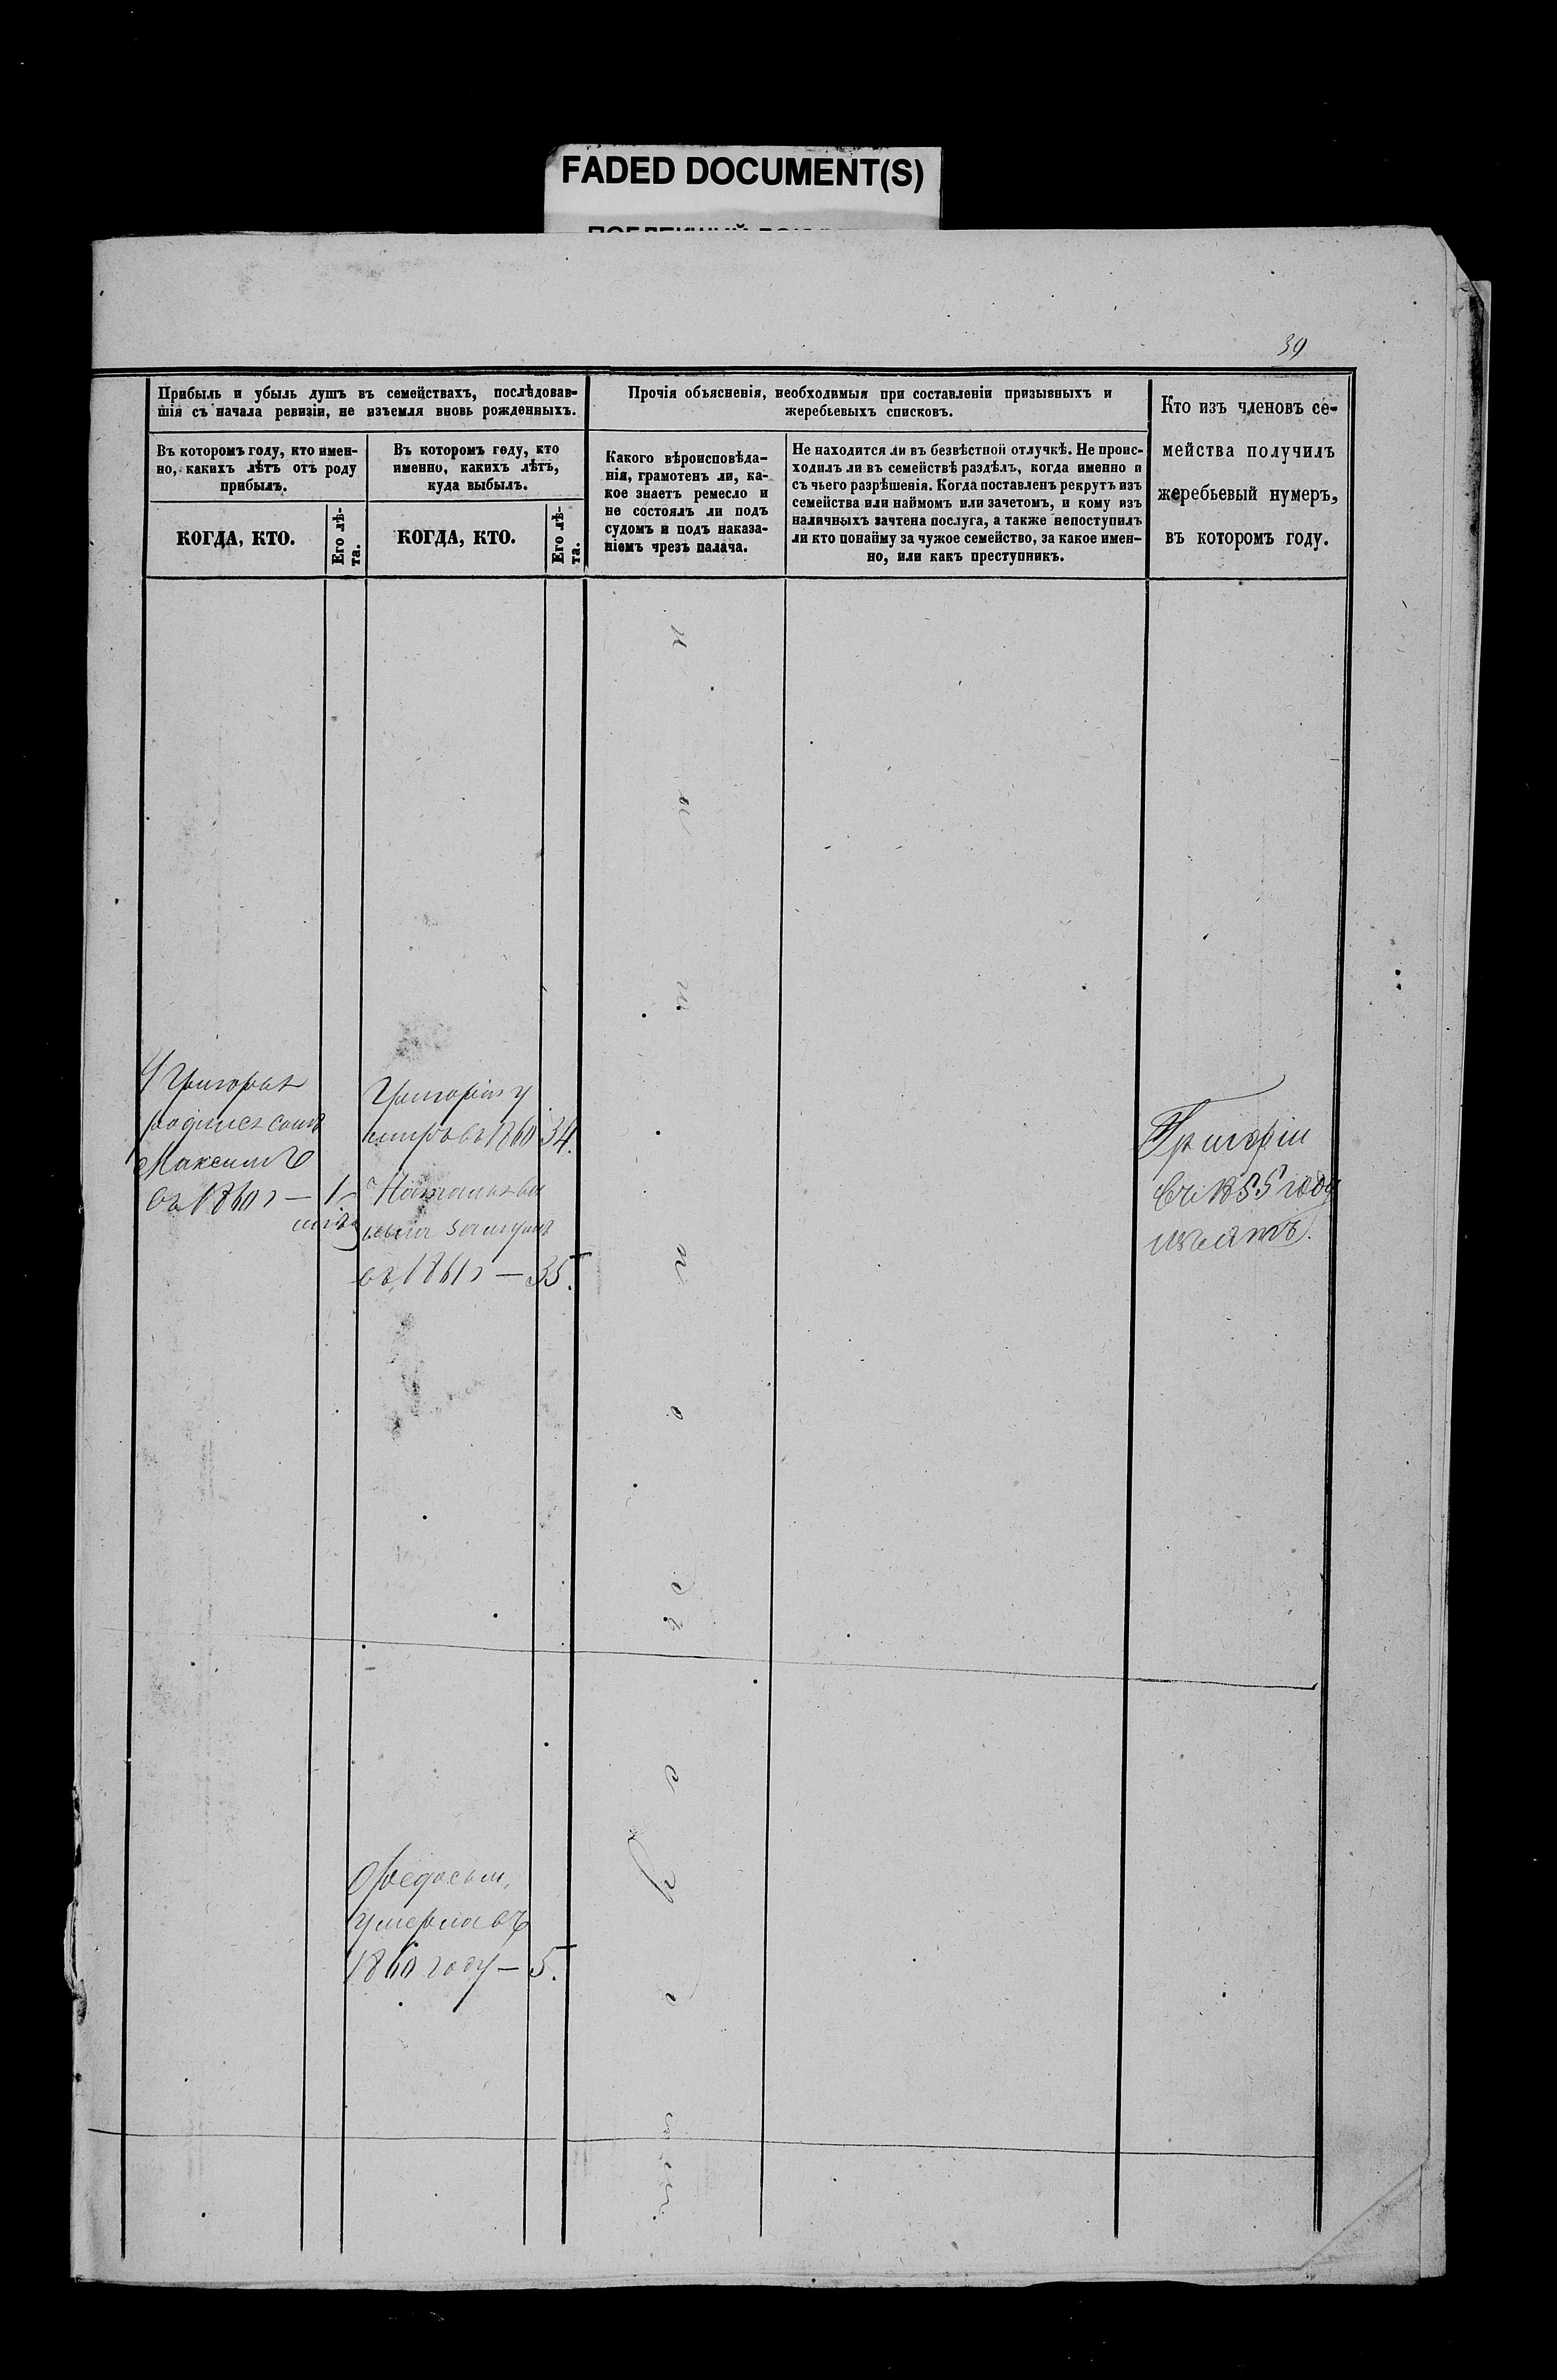 FADED DOCUMENT(S)
39
Прибыль и убыль душъ въ семействахъ, послѣдовав-
шія съ начала ревизіи, не изъемля вновь рожденныхъ.
Прочія объясненія, необходимыя при составленіи призывныхъ и
жеребьевыхъ списковъ.
Кто изъ членовъ се-
мейства получилъ
жеребьевый нумеръ,
въ которомъ году.
Въ которомъ году, кто имен-
но, какихъ лѣтъ отъ роду
прибылъ.
Въ которомъ году, кто
именно, какихъ лѣтъ,
куда выбылъ.
Какого вѣроисповѣда-
нія, грамотенъ ли, ка-
кое знаетъ ремесло и
не состоялъ ли подъ
судомъ и подъ наказа-
ніемъ чрезъ палача.
Не находится ли въ безвѣстной отлучкѣ. Не проис-
ходилъ ли въ семействѣ раздѣлъ, когда именно и
съ чьего разрѣшенія. Когда поставленъ рекрутъ изъ
семейства или наймомъ или зачетомъ, и кому изъ
наличныхъ зачтена послуга, а также непоступилъ
ли кто понайму за чужое семейство, за какое имен-
но, или какъ преступникъ.
КОГДА, КТО.
Его лѣ-
та.
КОГДА, КТО.
Его лѣ-
та.
У Григорья
родился сынъ
Максимъ
въ 1860 г — 1
Григорій у
меръ въ 1860 34.
Наталья вы
шла замужъ
въ 1861 г — 35.
Григорій
въ 1855 году
изъятъ.
Федосья,
умерла въ
1860 году — 5.